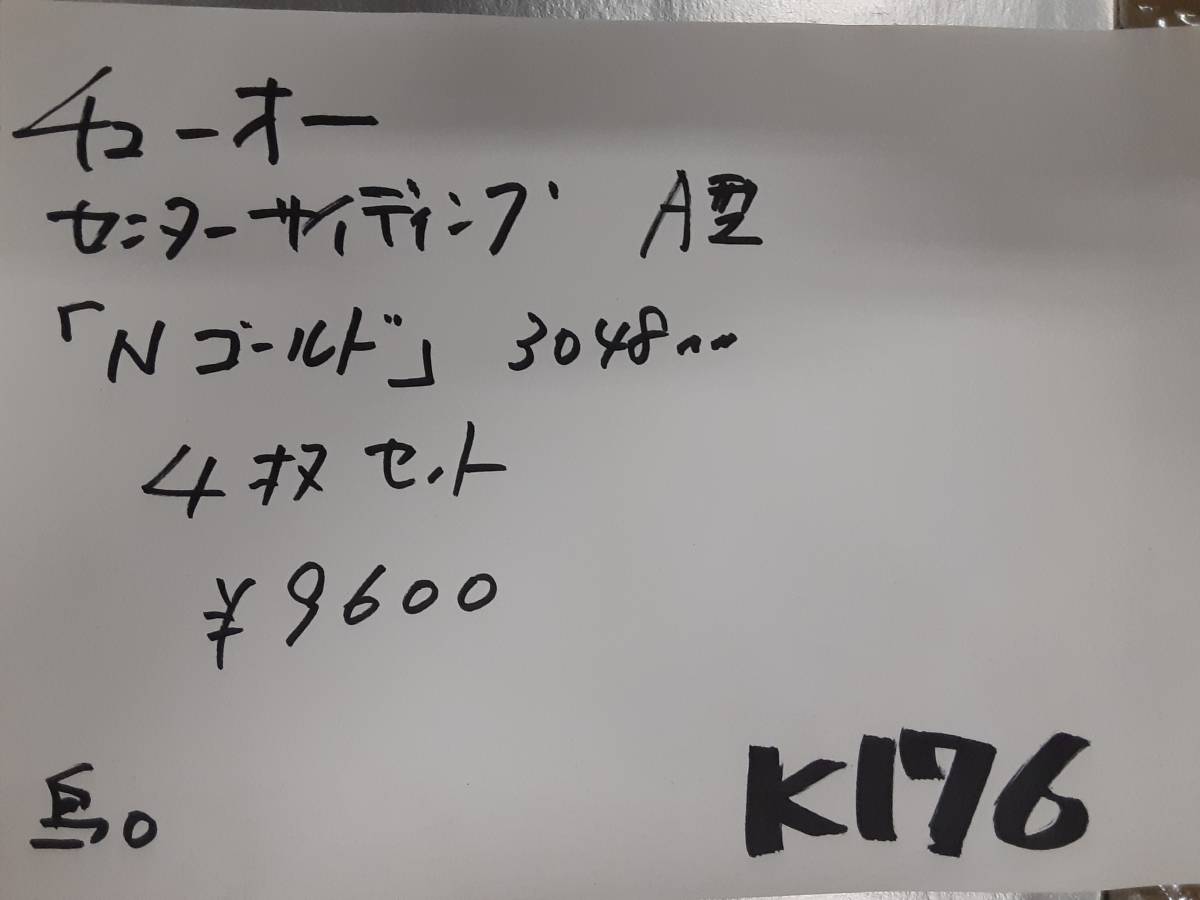 チューオー
センターサイディング A型
「Nゴールド」 3048mm
4枚セット
¥9600
K176